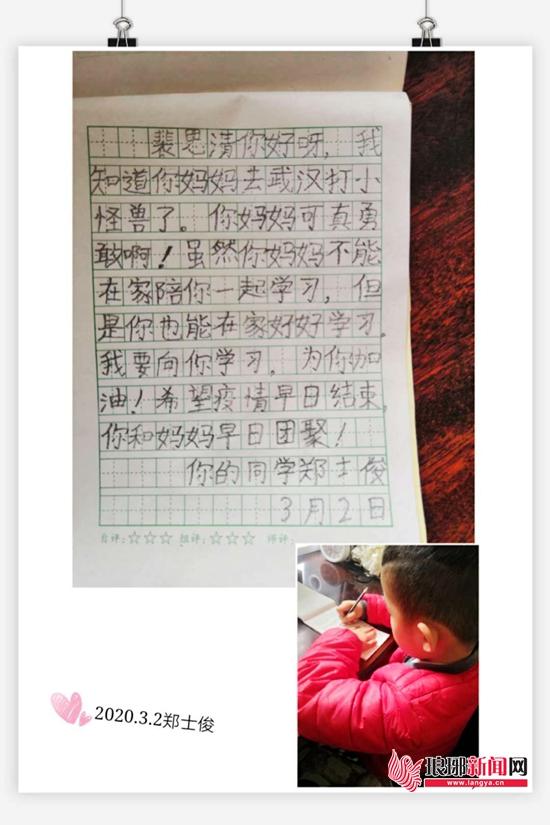 裴思清你好呀,我
知道你妈妈去武汉打小
怪兽了。你妈妈可真勇
敢啊!虽然你妈妈不能
在家陪你一起学习,但
是你也能在家好好学习。
我要向你学习,为你加
油!希望疫情早日结束,
你和妈妈早日团聚!
你的同学郑士俊
3月2日
自评:☆☆☆ 组评:☆☆☆ 师评:
2020.3.2郑士俊
琅琊新闻网
www.langya.cn